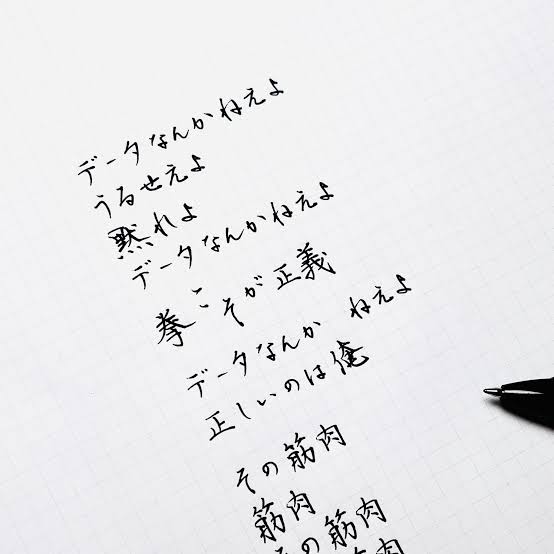 データなんかねえよ
うるせえよ
黙れよ
データなんかねえよ
拳こそが正義
データなんか ねえよ
正しいのは俺
その筋肉
筋肉
その筋肉
筋肉